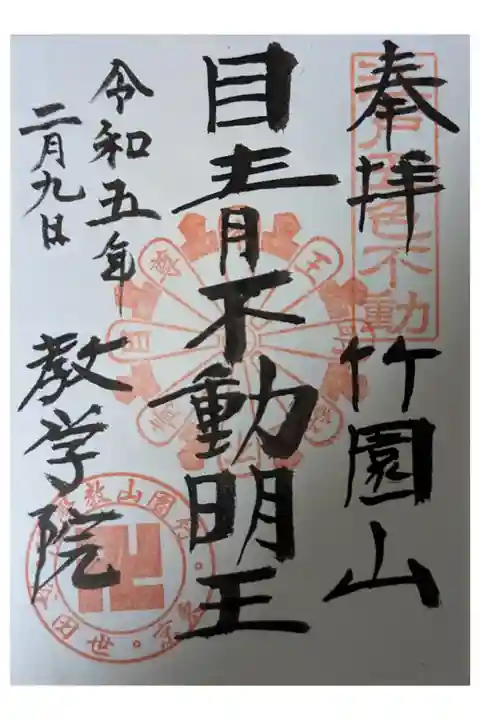 奉拝
江戸五色不動
竹園山
目青不動明王
令和五年
二月九日
教学院